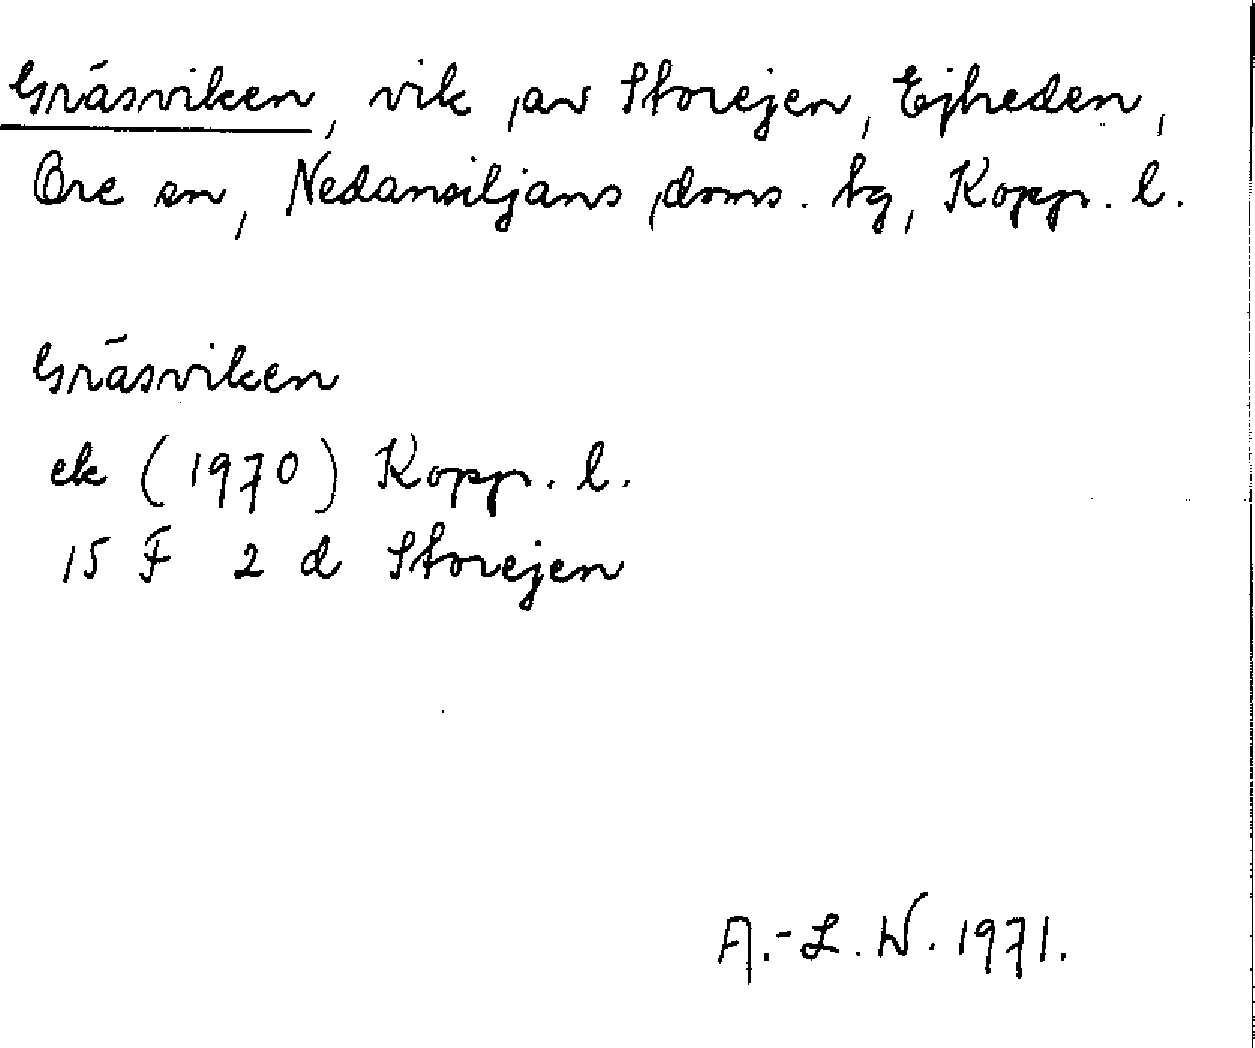 Gräsviken, vik av Storejen, Ejheden,
Ore sn, Nedansiljans doms. tg, Kopp. l.
Gräsviken
ek (1970) Kopp. l.
15 F 2 d Storejen
A.-L. W. 1971.